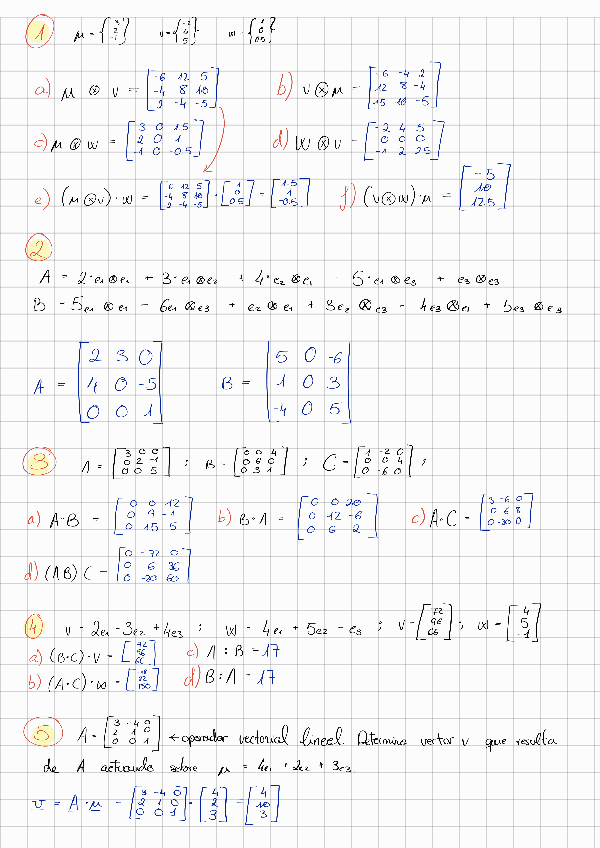 1 μ = {3 2 -1} v = {-2 4 5} w = {1 0 0.5}
a) μ ⊗ v = [-6 12 5; -4 8 10; 2 -4 -5] b) v ⊗ μ = [-6 -4 2; 12 8 -4; 15 10 -5]
c) μ ⊗ w = [3 0 1.5; 2 0 1; -1 0 -0.5] d) w ⊗ v = [-2 4 5; 0 0 0; -1 2 2.5]
e) (μ ⊗ v) · w = [-6 12 5; -4 8 10; 2 -4 -5] · [1 0 0.5] = [1.5 1 -0.5] f) (v ⊗ w) · μ = [-5 10 12.5]
2
A = 2·e1⊗e1 + 3·e1⊗e2 + 4·e2⊗e1 - 5·e1⊗e3 + e3⊗e3
B = 5e1⊗e1 - 6e1⊗e3 + e2⊗e1 + 3e2⊗e3 - 4e3⊗e1 + 5e3⊗e3
A = [2 3 0; 4 0 -5; 0 0 1] B = [5 0 -6; 1 0 3; -4 0 5]
3 A = [3 0 0; 0 2 -1; 0 0 5] ; B = [0 0 4; 0 6 0; 0 3 1] ; C = [1 -2 0; 0 0 4; 0 -6 0] ;
a) A·B = [0 0 12; 0 9 -1; 0 15 5] b) B·A = [0 0 20; 0 12 -6; 0 6 2] c) A·C = [3 -6 0; 0 6 8; 0 -30 0]
d) (AB) C = [0 -72 0; 0 6 36; 0 -30 60]
4 v = 2e1 - 3e2 + 4e3 ; w = 4e1 + 5e2 - e3 ; v = ; w = [4 5 -1]
a) (B·C)·v = c) A : B = 17
b) (A·C)·w = d) B : A = 17
5 A = [3 -4 0; 2 1 0; 0 0 1] ← operador vectorial lineal. Determina vector v que resulta
de A actuando sobre μ = 4e1 + 2e2 + 3e3
v = A·μ = [3 -4 0; 2 1 0; 0 0 1] · [4 2 3] = [4 10 3]